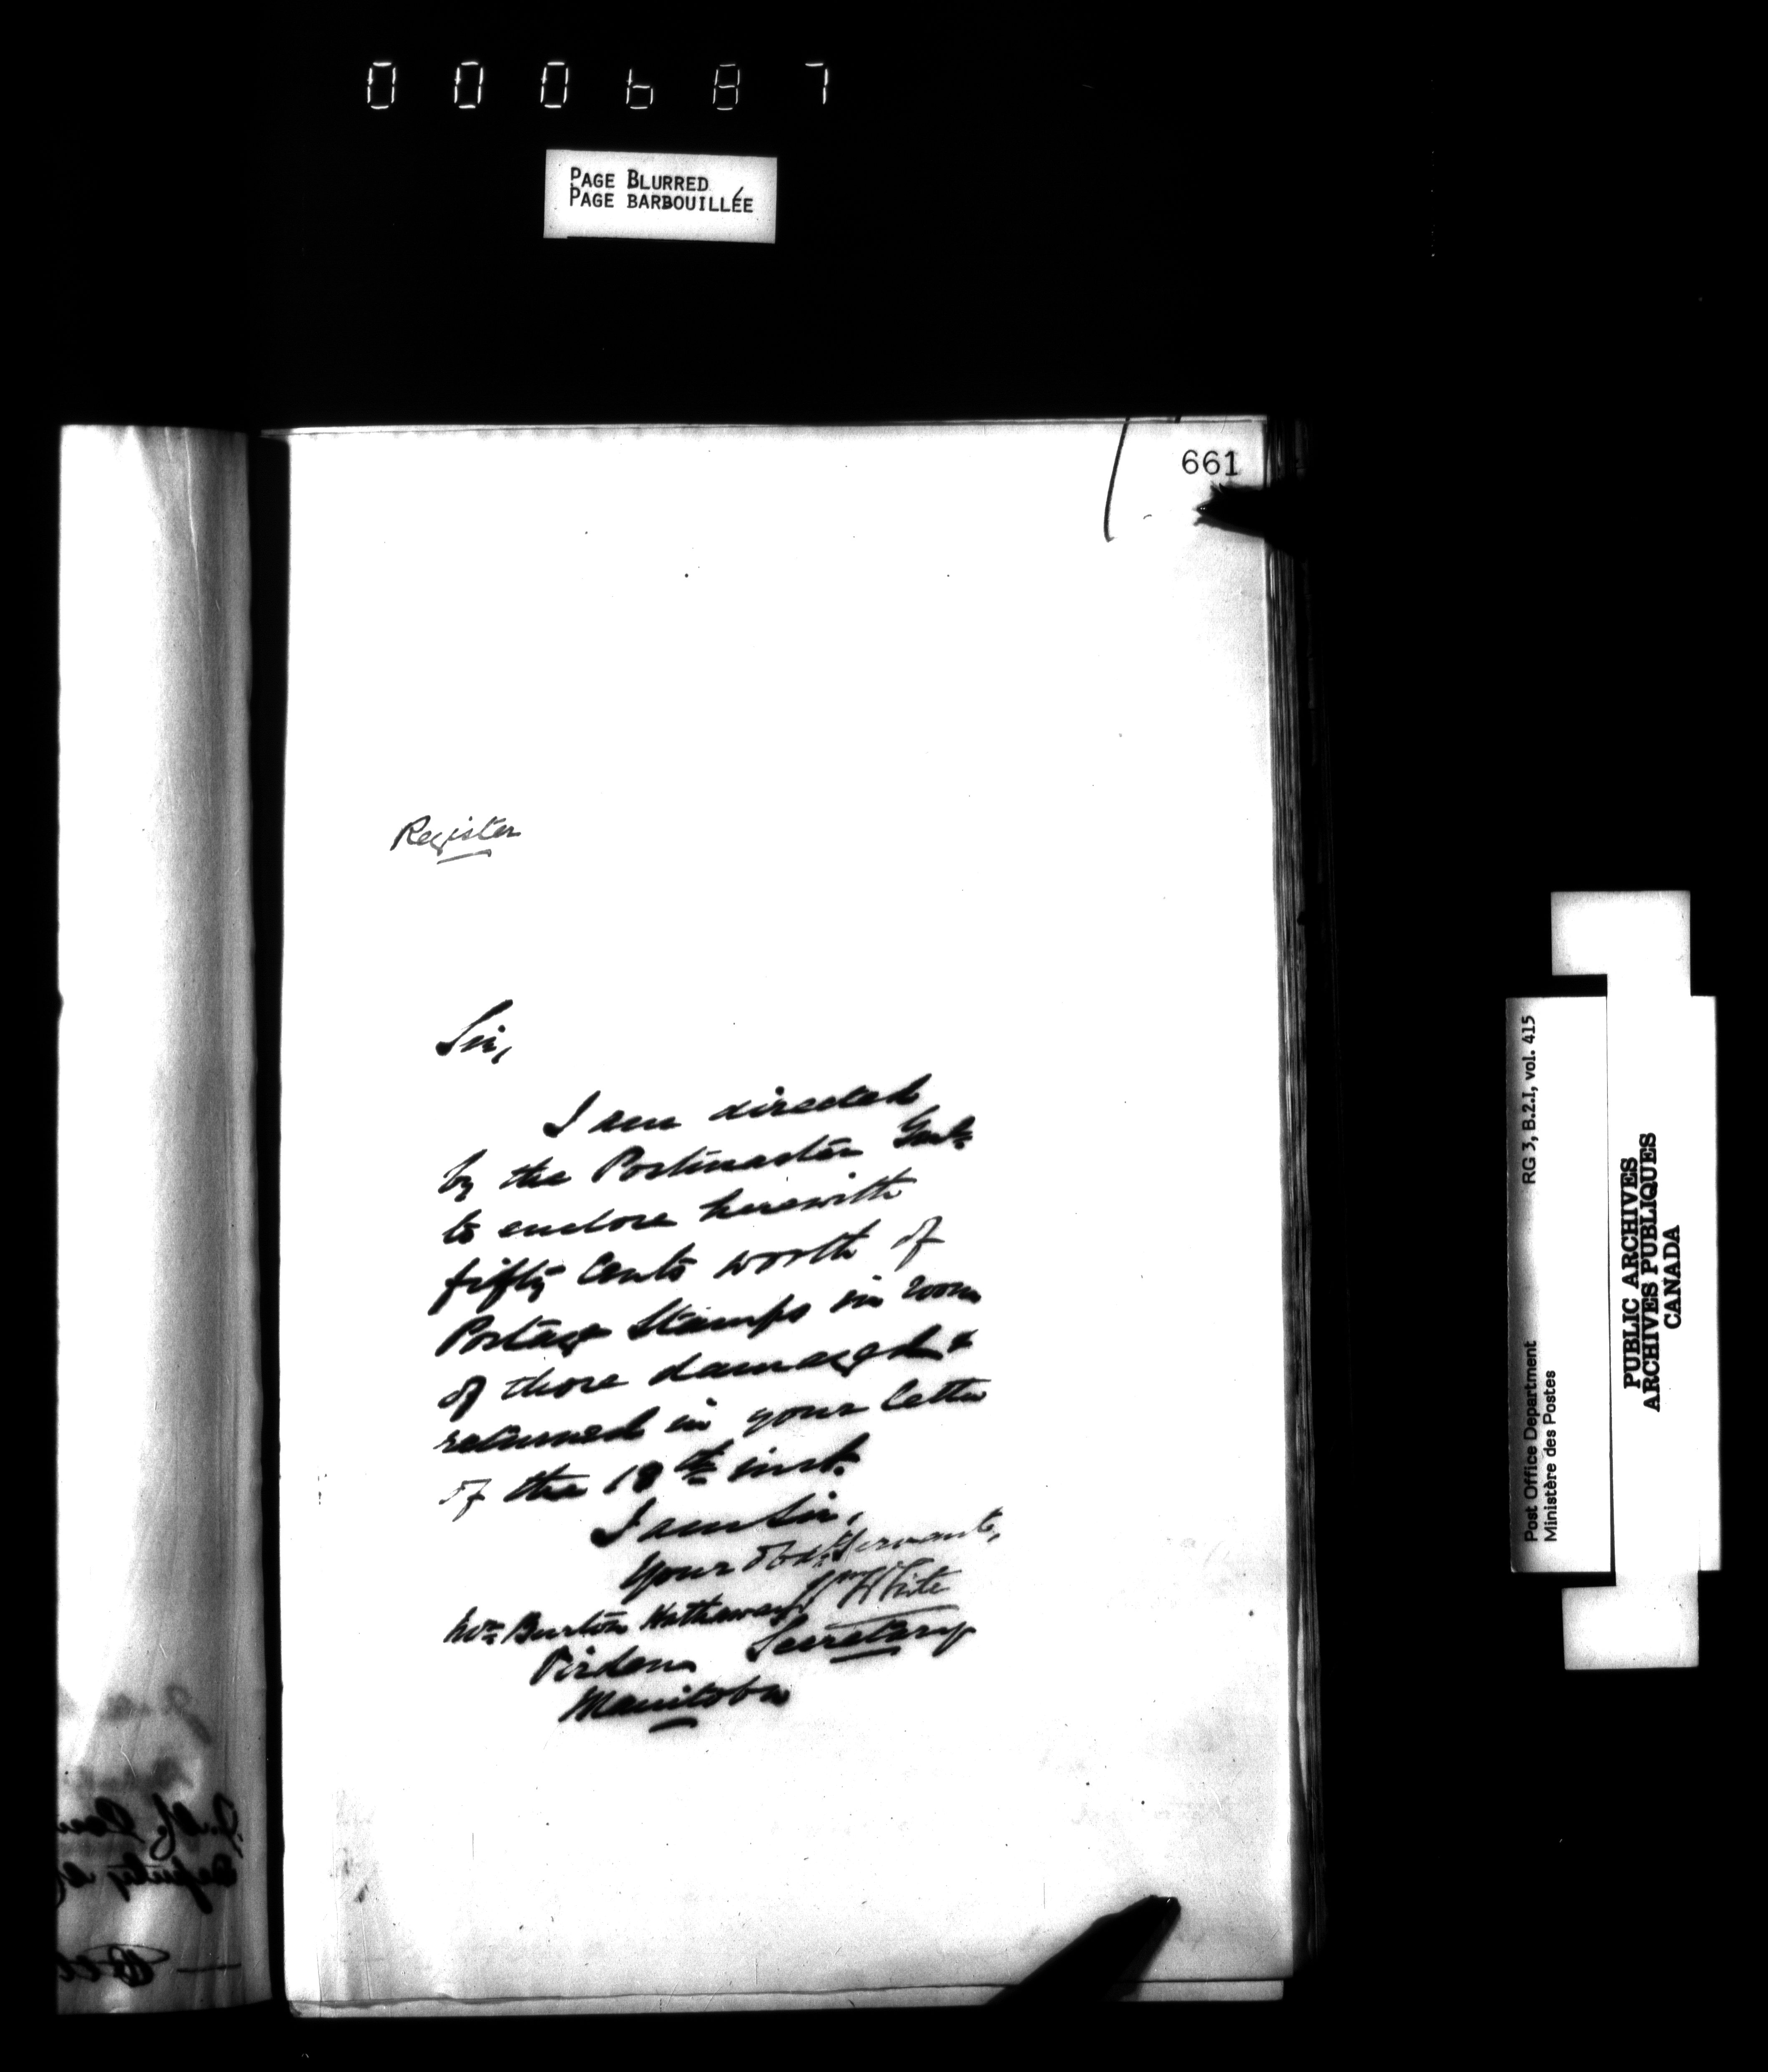 000687
PAGE BLURRED
PAGE BARBOUILLÉE
661
Register
Sir,
I am directed
by the Postmaster Genl.
to enclose herewith
fifty cents worth of
Postage Stamps in room
of those damaged &
returned in your letter
of the 18th inst.
I am Sir,
Your Obdt. Servant,
Wm White
Secretary
Burton Hathaway
Virden
Manitoba
RG 3, B.2.I, vol. 415
Post Office Department
Ministère des Postes
PUBLIC ARCHIVES
ARCHIVES PUBLIQUES
CANADA